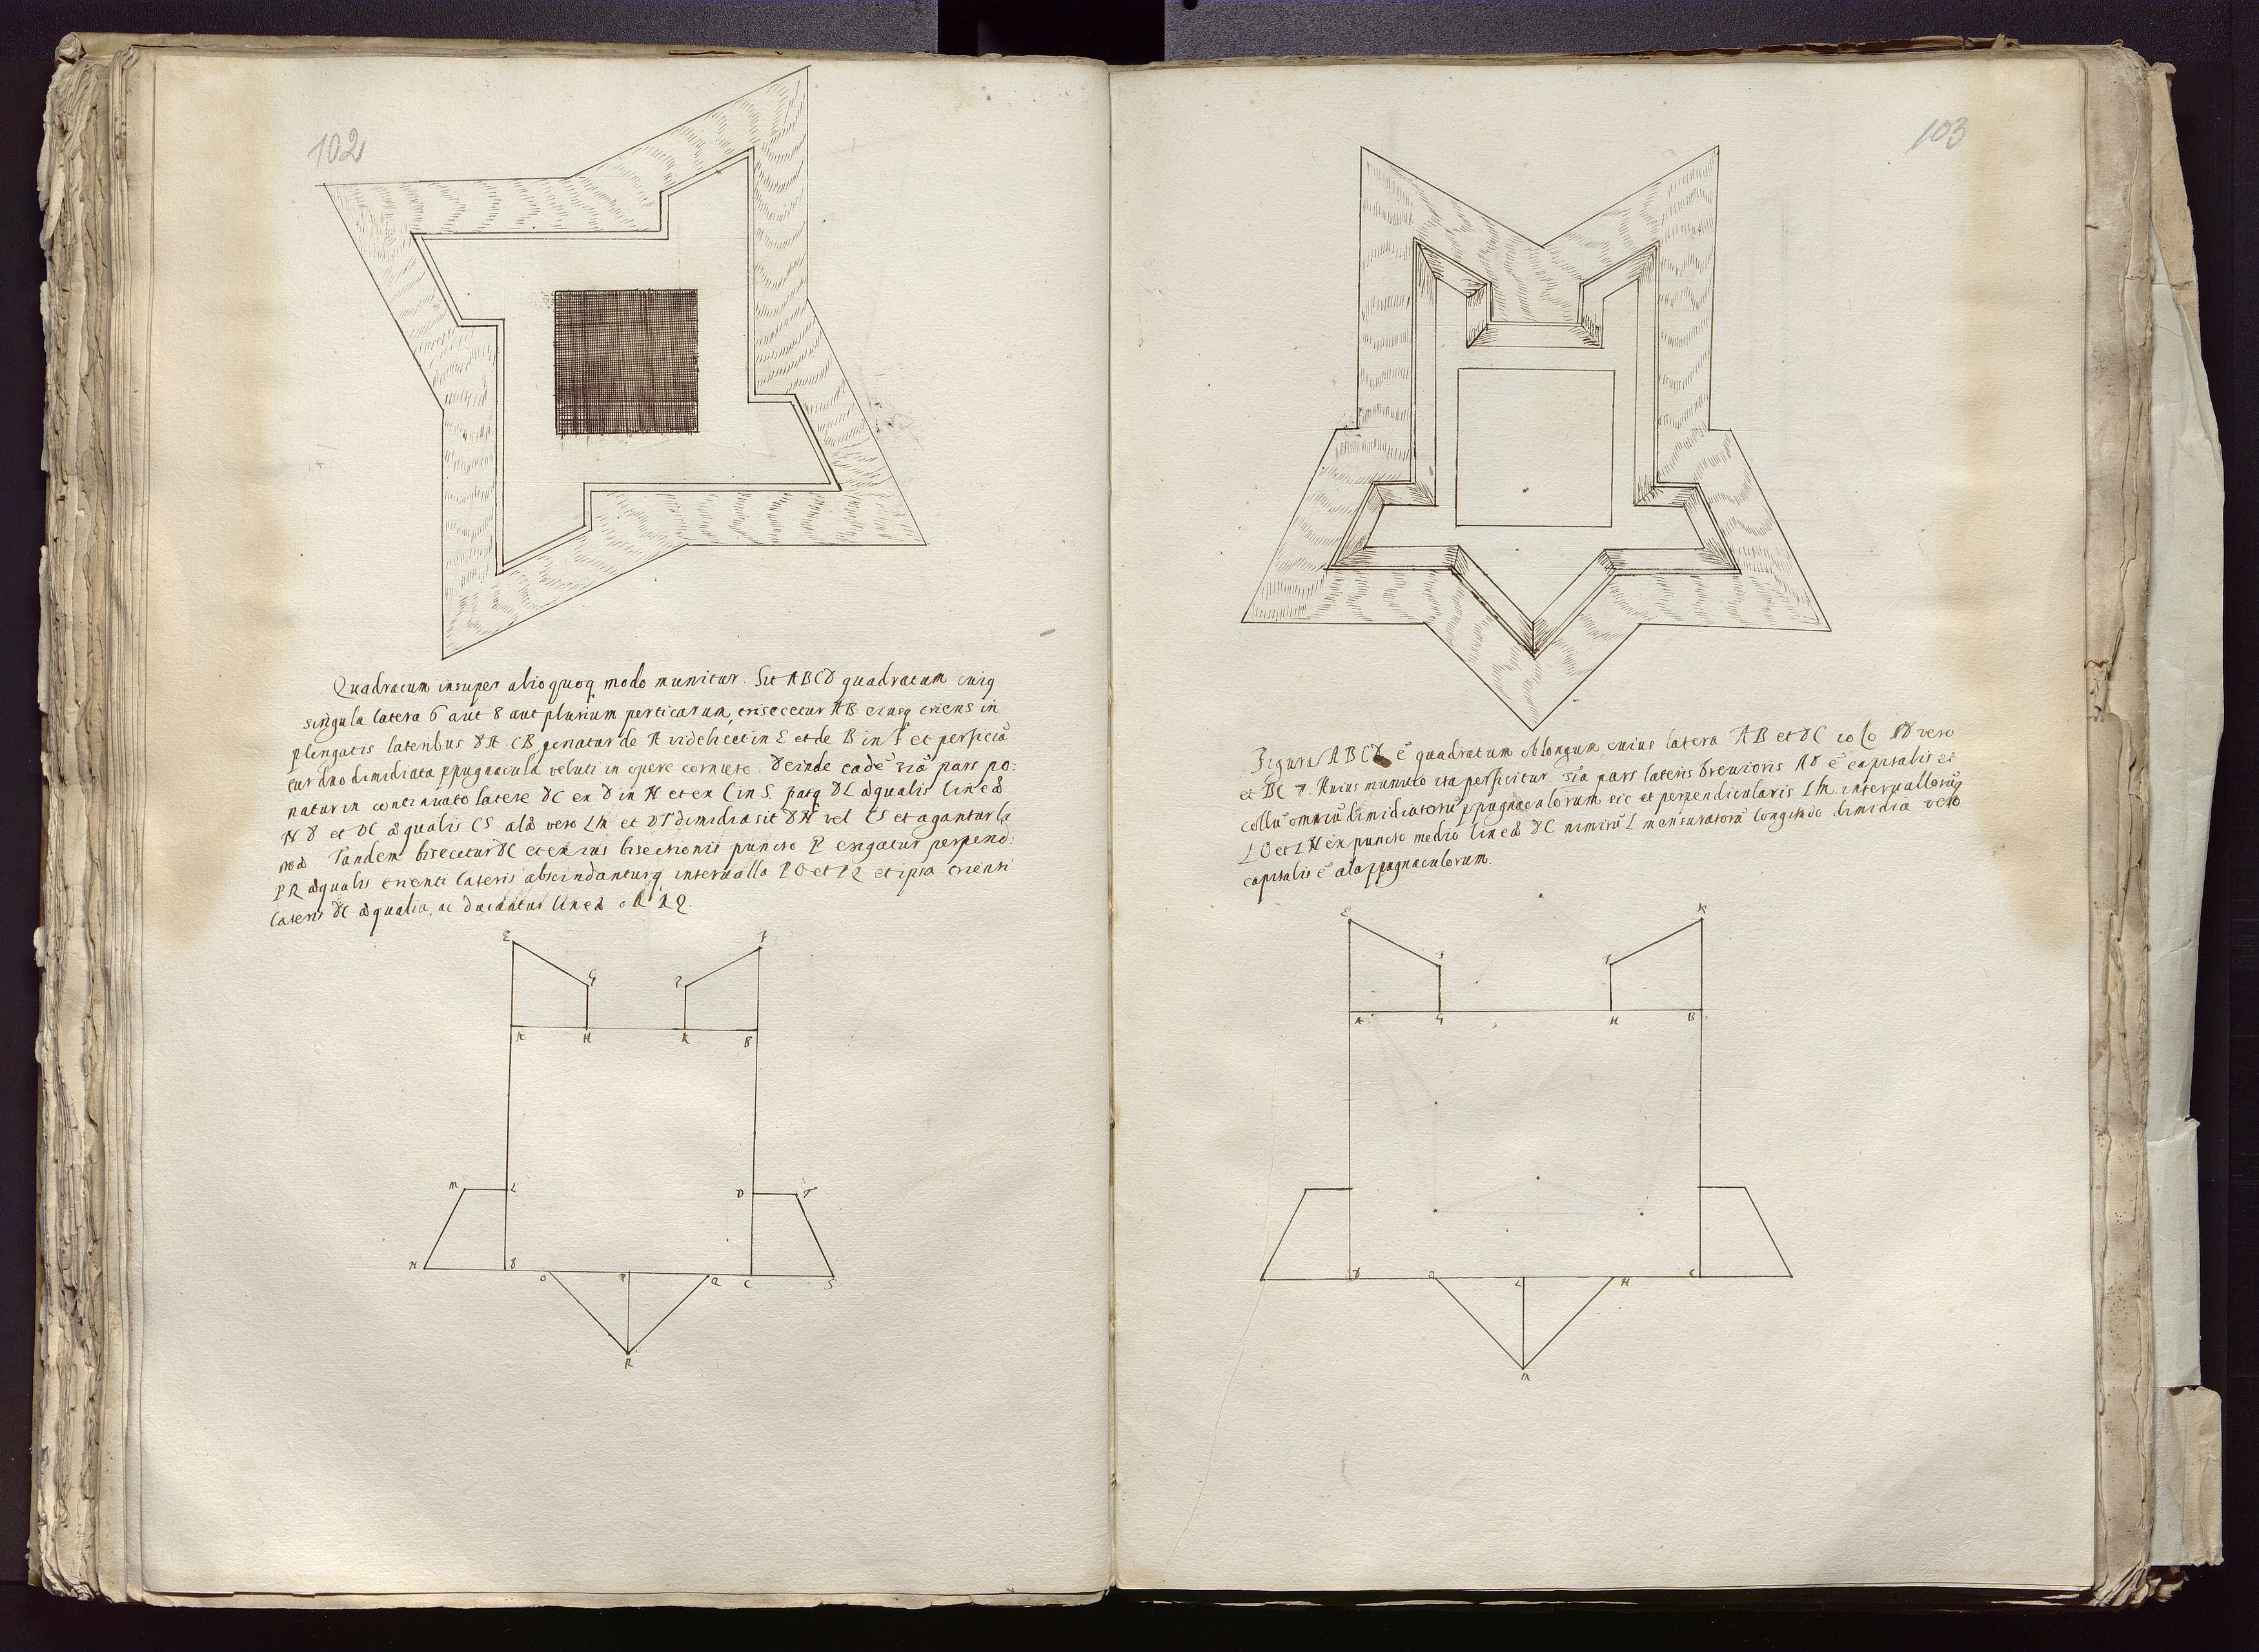 102
Quadratum insuper alio quoq modo munitur. Sit ABCD quadratum cuiq
singula latera 6 aut 8 aut plurium perticarum, trisecetur AB eiusq triens in
plongatis lateribus DA CB, ponatur de A videlicet in E et de B in F et perficiā
tur duo dimidiata ppugnacula veluti in opere cornuto. Deinde eadē 3ia pars po:
natur in continuato latere DC ex D in N et ex C in S. fiatq DL æqualis lineæ
N D et OC æqualis CS alæ vero LM et OT dimidia sit DN vel CS et agantur li
neæ. Tandem bisecetur DC et ex eius bisectionis puncto P erigatur perpend:
PR æqualis trienti lateris abscindanturq intervalla PO et PQ et ipsa trienti
lateris DC æqualia, ac ducantur lineæ OR RQ.
E F
G I
A H K B
M L O T
N D O P Q C S
R
103
Figura ABCD ē quadratum oblongum cuius latera AB et DC 10 AD vero
et BC 7. Huius munitio ita perficitur 3ia pars lateris brevioris AD ē capitalis et
collū omniū dimidiatorū ppugnaculorum sic et perpendicularis LM intervallorūq
LO et LN ex puncto medio lineæ DC nimirū L mensuratorū longitudo dimidia vero
capitalis ē ala ppugnaculorum.
E K
F I
A G H B
D O L N C
M